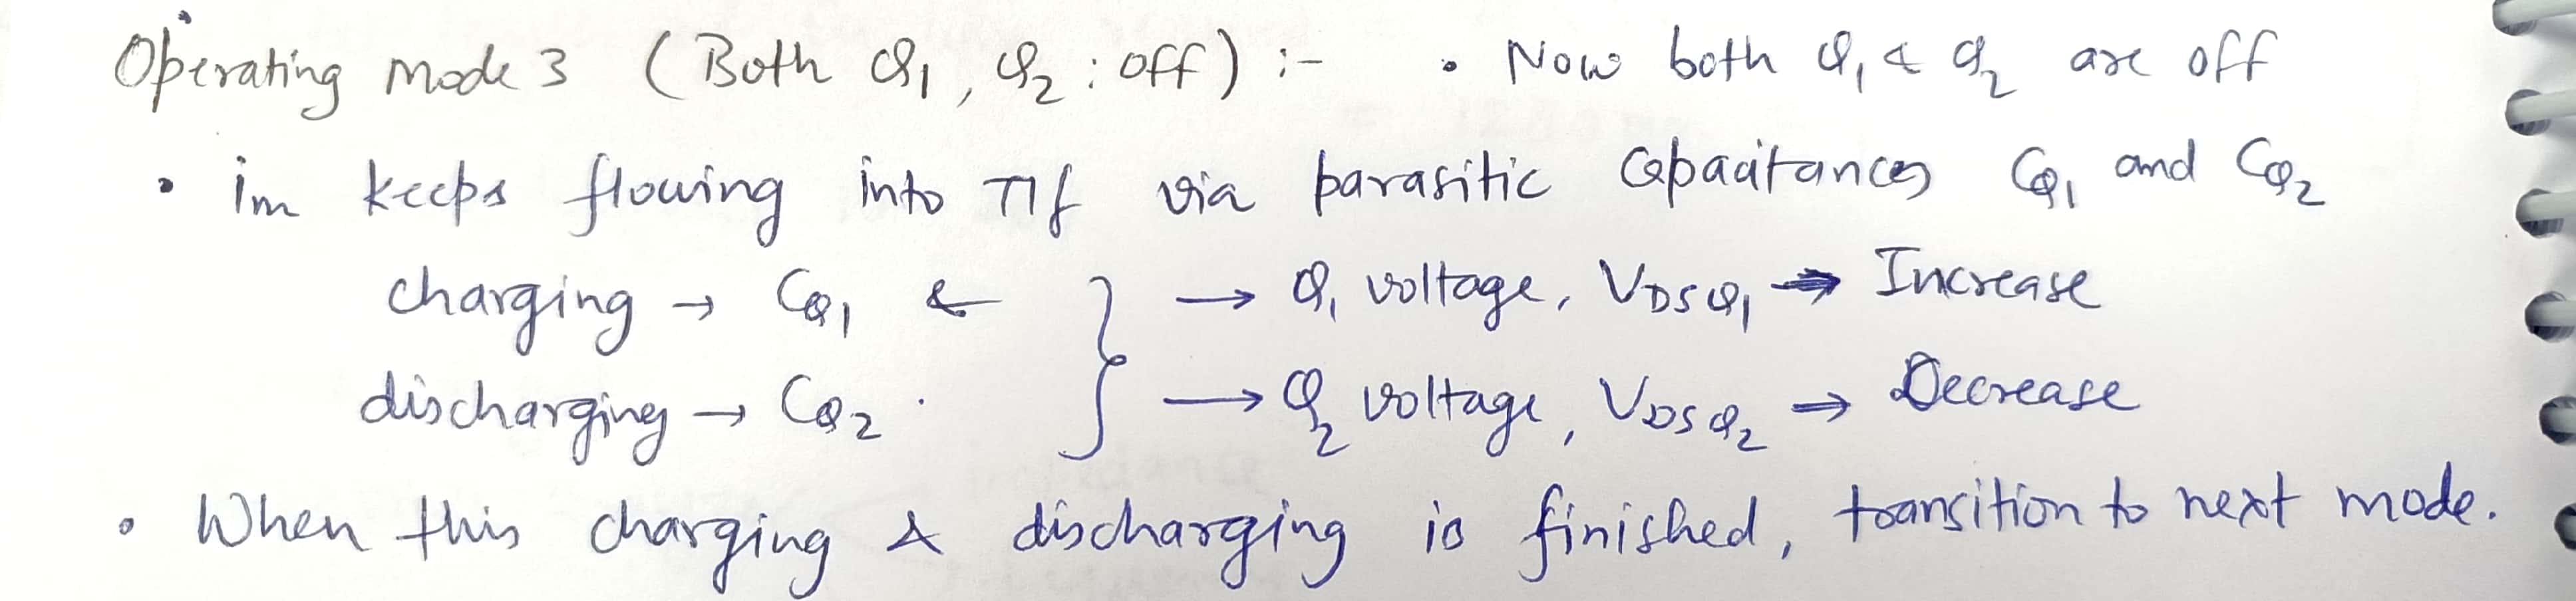 Operating mode 3 (Both Q1, Q2 : off) :- • Now both Q1 & Q2 are off
• im keeps flowing into T/f via parasitic capacitances CQ1 and CQ2
charging → CQ1 ← } → Q1 voltage, VDSQ1 → Increase
discharging → CQ2 } → Q2 voltage, VDSQ2 → Decrease
• When this charging & discharging is finished, transition to next mode.